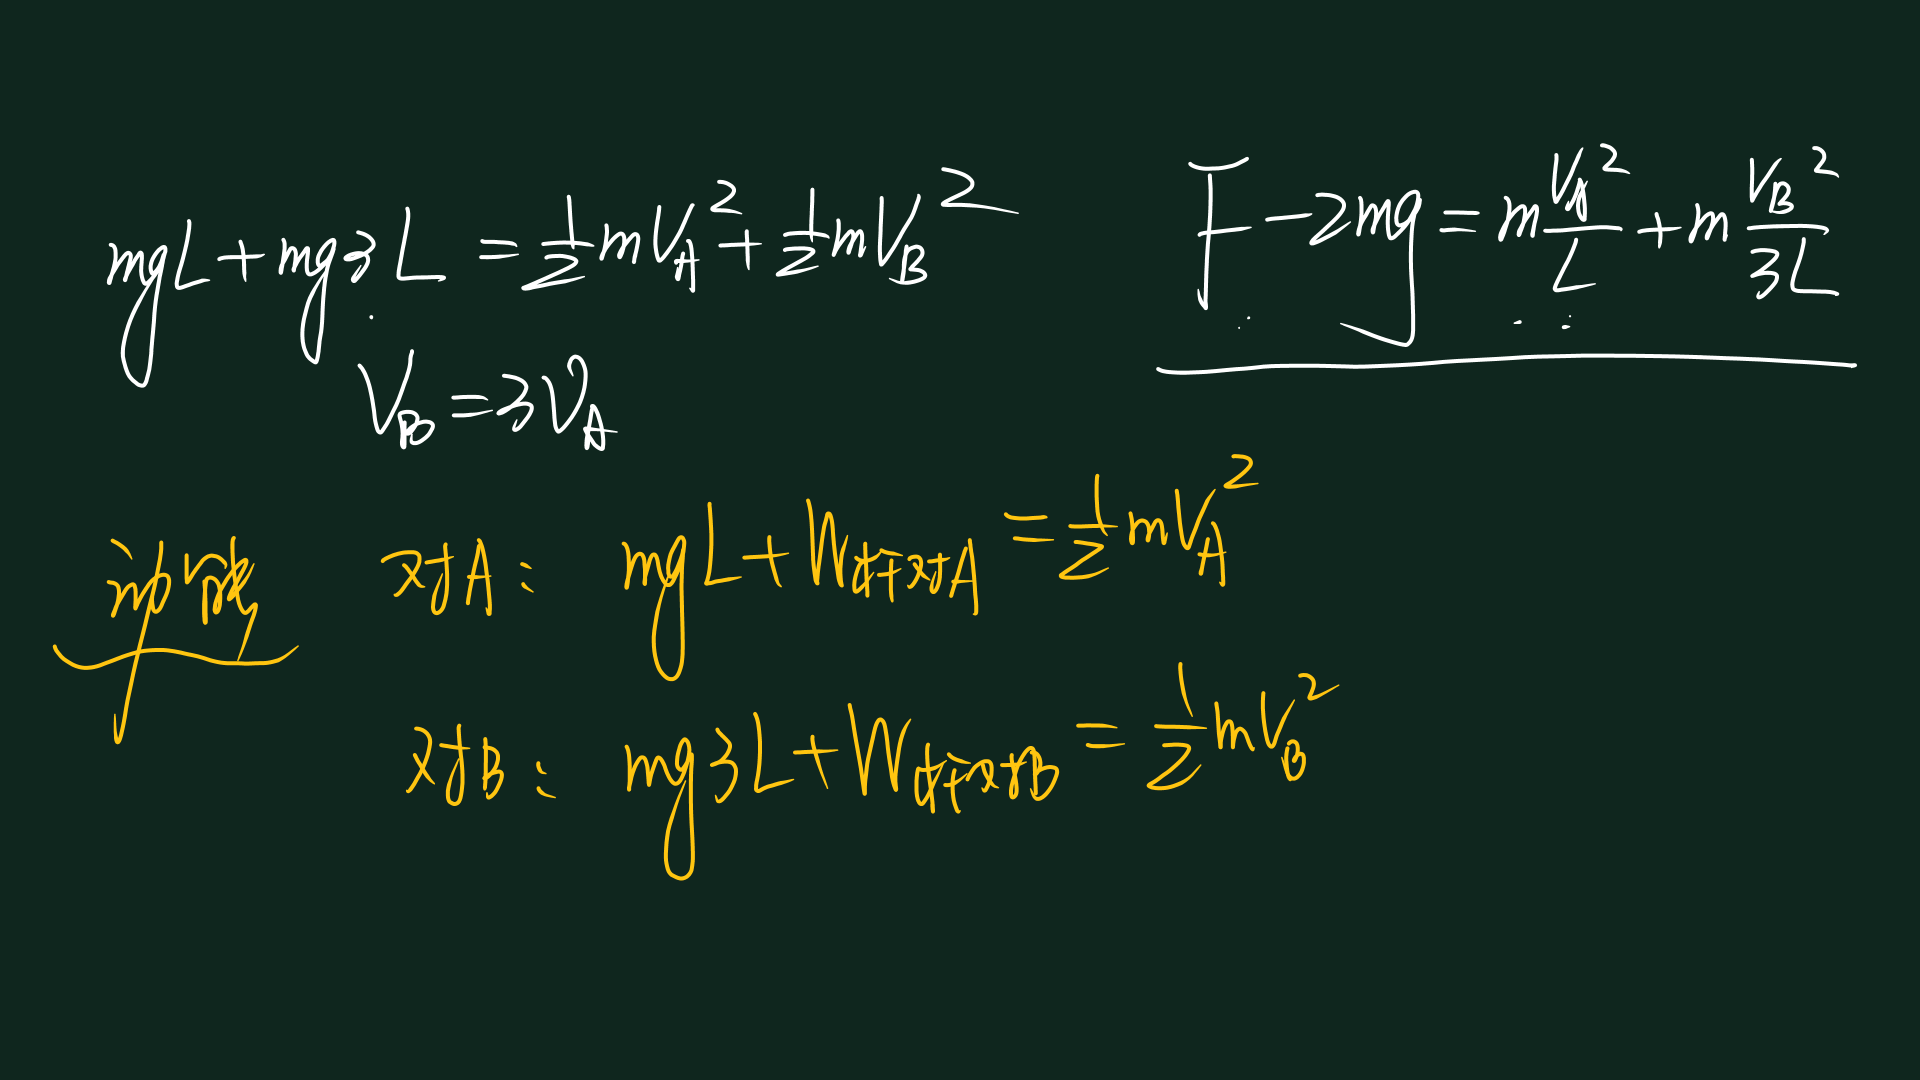 mgL+mg3L=\frac{1}{2}mV_A^2+\frac{1}{2}mV_B^2
F-2mg=m\frac{V_A^2}{L}+m\frac{V_B^2}{3L}
V_B=3V_A
动能 对A: mgL+W_{杆对A}=\frac{1}{2}mV_A^2
对B: mg3L+W_{杆对B}=\frac{1}{2}mV_B^2